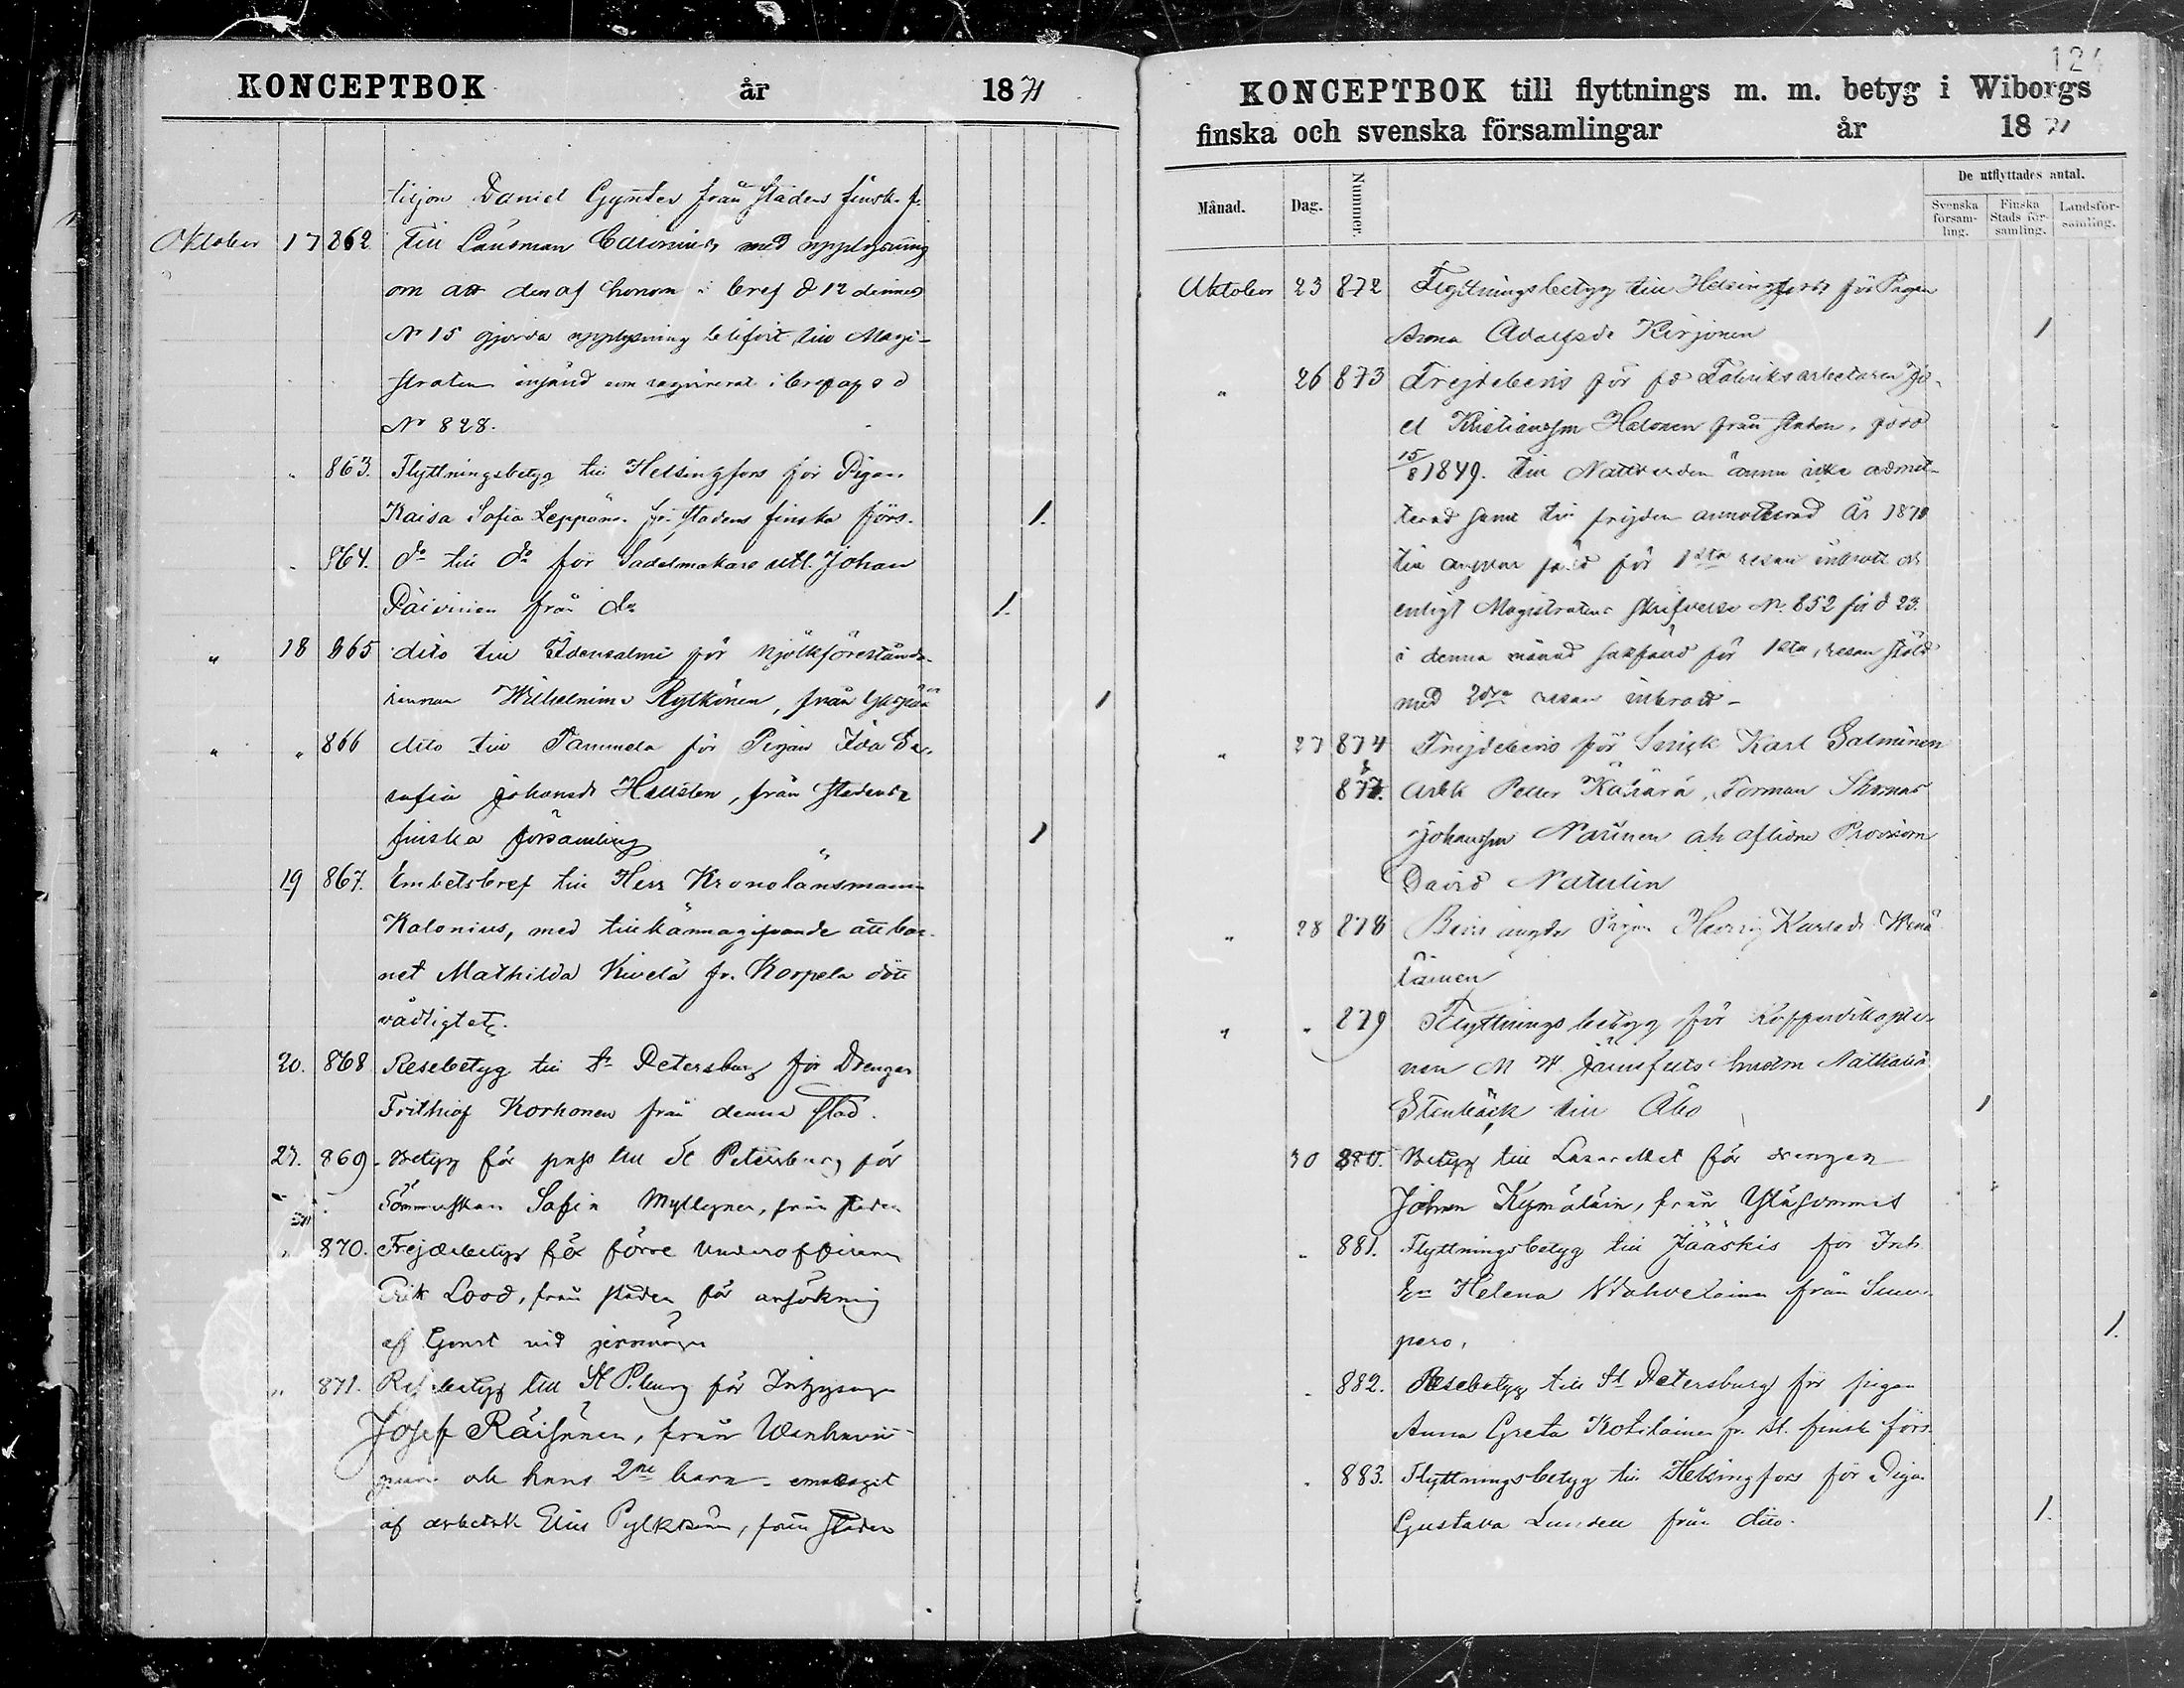 KONCEPTBOK år 1871
tisjon Daniel Gynter från stadens finsk. f.
Oktober 17 862 Till Länsman Calonius, med upplysning
om att den af honom i bref d 12 dennes
No 15 gjorda upplysning blifvit till Magi-
straten insänd som requirerat i bref af d
No 828.
" 863. Flyttningsbetyg till Helsingfors för Pigan
Kaisa Sofia Leppäne. fr. stadens finska förs. 1.
" 864. do till do för Sadelmakare utl. Johan
Päivinen från do 1.
" 18 865 dito till Idensalmi för Mjölkförestånda-
rinnan Wilhelmina Rytkönen, från 1
" " 866 dito till Tammela för Pigan Ida Se-
rafia Johansdr Hellsten, från stadens
finska församling 1
19 867. Embetsbref till Herr Kronolänsmann
Kalonius, med tillkännagifvande att bar-
net Mathilda Kivelä fr. Korpela dött
vådligt etc.
20. 868 Resebetyg till St Petersburg för Drengen
Frithiof Korhonen från denna stad.
23. 869. Betyg för pass till St Petersburg för
Sömmerskan Sofia Myllynen, från staden
" 870. Frejdebetyg för förre Underofficeren
Erik Lood, från staden för ansökning
af tjenst vid jernvägen
" 871. Resebetyg till St P.burg för Inhysingen
Josef Räisänen, från Wanhavii-
puri och hans 2ne barn - emottaget
af arbetsk Elias Pylkkänen, från staden
124
KONCEPTBOK till flyttnings m. m. betyg i Wiborgs
finska och svenska församlingar år 1871
Månad. Dag. Nummer. De utflyttades antal.
Svenska försam-ling. Finska Stads för-samling. Landsför-samling.
Oktober 23 872 Flyttningsbetyg till Helsingfors för Pigan
Anna Adolfsdr Kirjonen 1
" 26 873 Frejdebevis för fd Fabriksarbetaren Jo-
el Kristiansson Halonen från staden, född
15/8 1849. till Nattvarden ännu icke admit-
terad samt till frejden annoterad År 1870
till ansvar fäld för 1sta resan inbrott och
enligt Magistratens skrifvelse No. 852 för d 23.
i denna månad sakfäld för 1sta resan stöld
med 2dra resan inbrott -
" 27 874 Frejdebevis för Karl Salminen
& 877. Arbk Petter Käkärä, Forman Thomas
Johansson Narinen och aflidne Provisorn
David Natulin
" 28 878 Bevis angde Pigan Hedvig Karlsdr Wenä
läinen
" " 879 Flyttningsbetyg för Kofferdikapte-
nen M W Järnefelts hustru Nathalia
Stenbäck till Åbo 1
30 880. Betyg till Lasarettet för drengen
Johan Kymäläin, från Yläsommee
" 881. Flyttningsbetyg till Jääskis för Inh
En Helena Wahvelainen från Suur
pero. 1.
" 882. Resebetyg till St Petersburg för pigan
Anna Greta Kotilainen fr. st. finsk förs.
" 883. Flyttningsbetyg till Helsingfors för Pigan
Gustava Lundell från dito. 1.